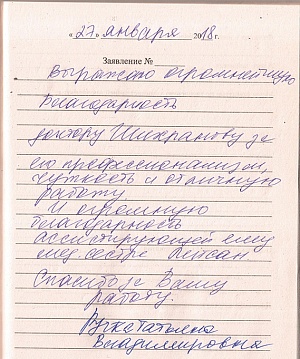 « 27 » января 2018 г.
Заявление № 
Выражаю огромнейшую
благодарность
доктору Шихранову за
его профессионализм,
чуткость и отличную
работу
И огромную
благодарность
ассистирующей ему
мед. сестре Лейсан
Спасибо за Вашу
работу.
Татьяна
Владимировна